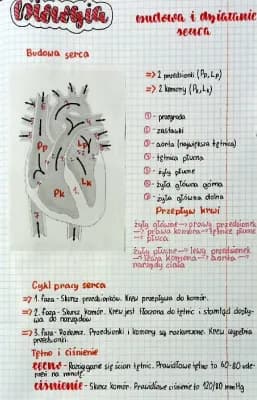 Biologia
budowa i działanie
serca
Budowa serca
=> 2 przedsionki (Pp, Lp)
=> 2 komory (Pk, Lk)
Pp
Lp
Pk
Lk
① - przegroda
② - zastawki
③ - aorta (największa tętnica)
④ - tętnica płucna
⑤ - żyły płucne
⑥ - żyła główna górna
⑦ - żyła główna dolna
Przepływ krwi
żyły główne → prawy przedsionek
→ prawa komora → tętnice płucne →
płuca
żyły płucne → lewy przedsionek
→ lewa komora → aorta →
narządy ciała
Cykl pracy serca
=> 1. faza - Skurcz przedsionków. Krew przepływa do komór.
=> 2. faza - Skurcz komór. Krew jest tłoczona do tętnic i stamtąd dopływa do narządów
=> 3. faza - Pauza. Przedsionki i komory są rozkurczone. Krew wypełnia
przedsionki.
Tętno i ciśnienie
tętno - Rozciąganie się ścian tętnic. Prawidłowe tętno to 60-80 uderzeń na minutę
ciśnienie - Skurcz komór. Prawidłowe ciśnienie to 120/80 mmHg